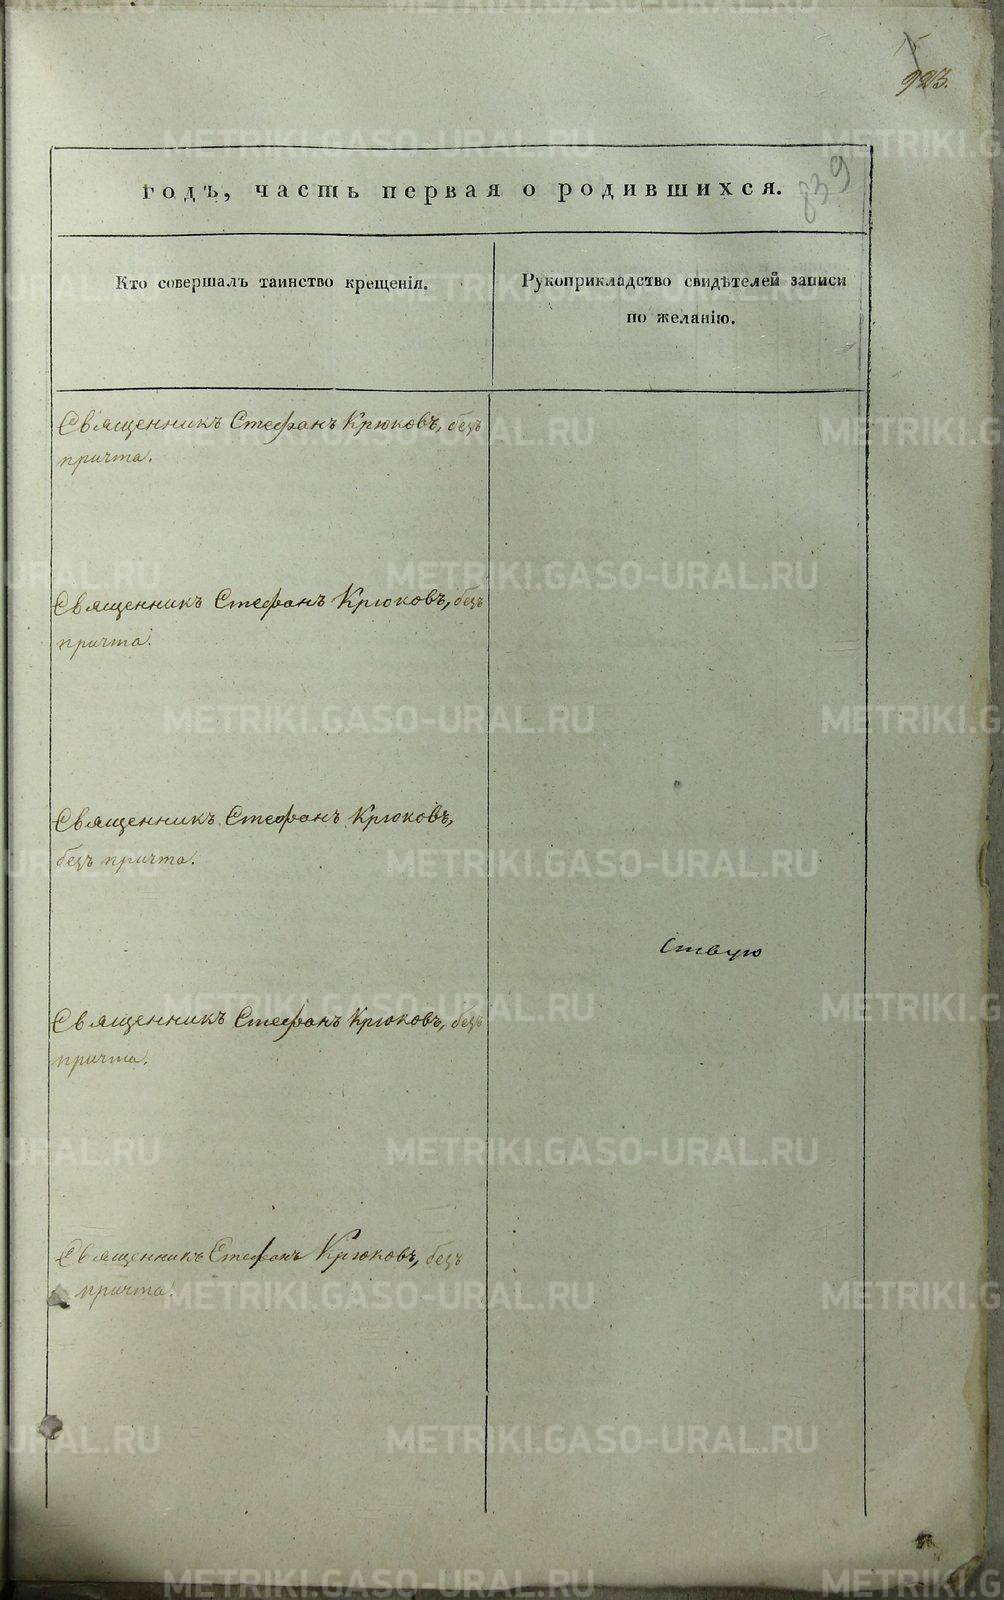 923.
839
годъ, часть первая о родившихся.
Кто совершалъ таинство крещенія.
Рукоприкладство свидѣтелей записи
по желанію.
Священникъ Стефанъ Крюковъ, безъ
причта.
Священникъ Стефанъ Крюковъ, безъ
причта.
Священникъ Стефанъ Крюковъ,
безъ причта.
ствую
Священникъ Стефанъ Крюковъ, безъ
причта.
Священникъ Стефанъ Крюковъ, безъ
причта.
METRIKI.GASO-URAL.RU